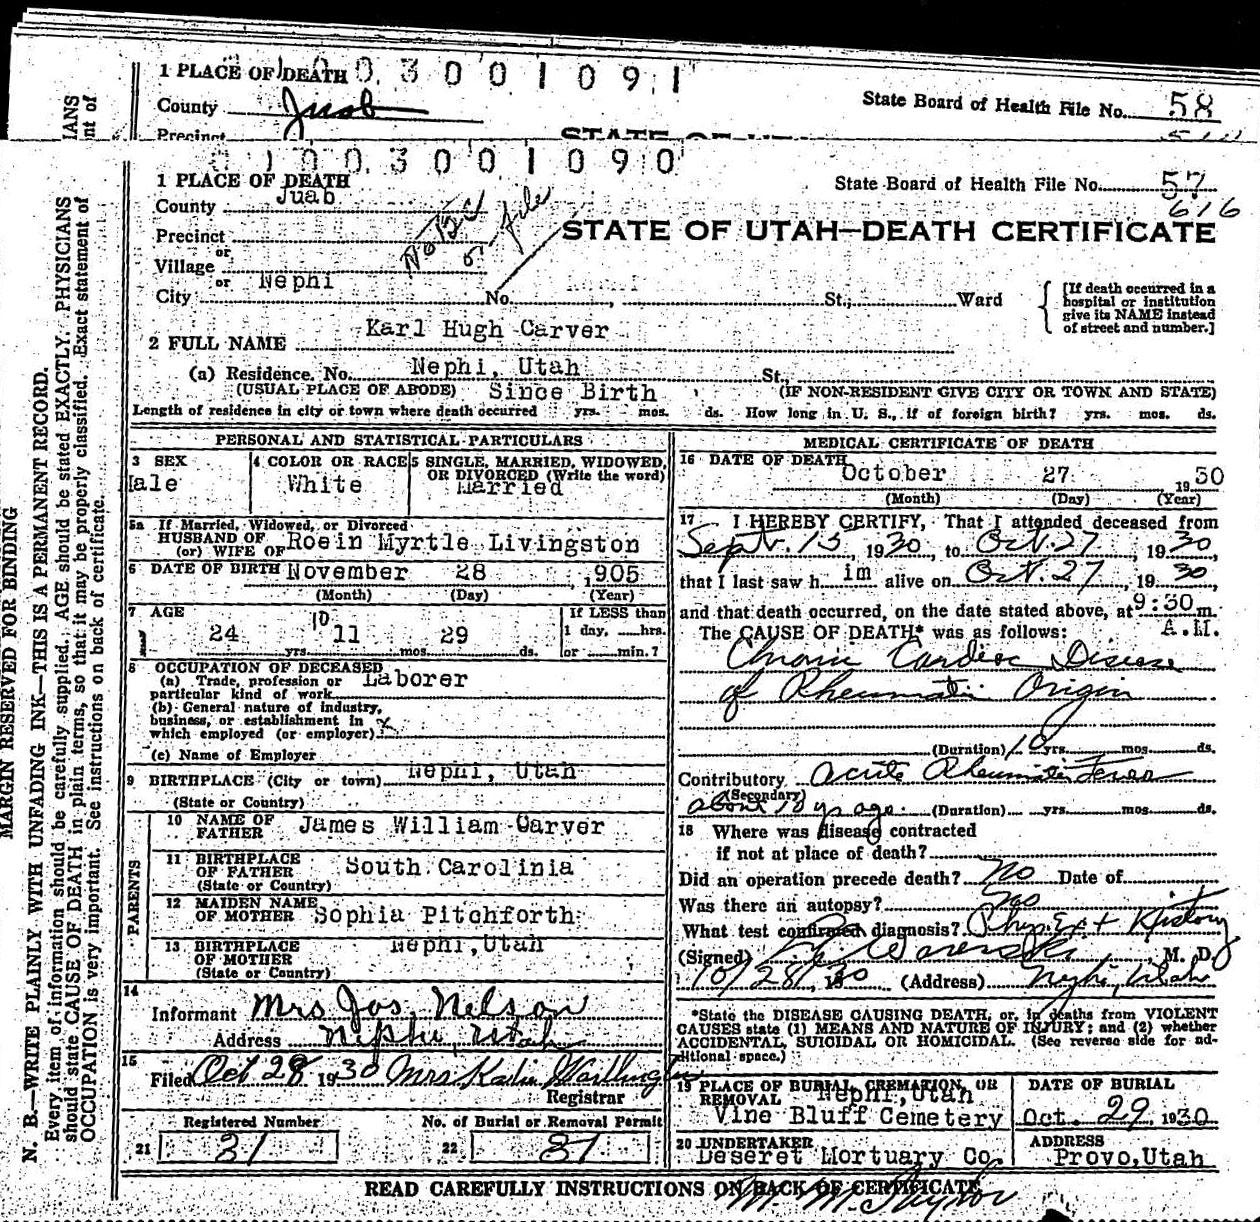 1 PLACE OF DEATH 0 0 3 0 0 1 0 9 1
County Juab
State Board of Health File No. 58
Precinct
0 1 0 0 3 0 0 1 0 9 0
1 PLACE OF DEATH
State Board of Health File No. 57
616
County Juab
STATE OF UTAH—DEATH CERTIFICATE
Precinct
or
Village
or
City Nephi No. , St., Ward
[If death occurred in a
hospital or institution
give its NAME instead
of street and number.]
2 FULL NAME Karl Hugh Carver
(a) Residence. No. Nephi, Utah St.
(USUAL PLACE OF ABODE) Since Birth (IF NON-RESIDENT GIVE CITY OR TOWN AND STATE)
Length of residence in city or town where death occurred yrs. mos. ds. How long in U. S., if of foreign birth? yrs. mos. ds.
PERSONAL AND STATISTICAL PARTICULARS
3 SEX
Male
4 COLOR OR RACE
White
5 SINGLE, MARRIED, WIDOWED,
OR DIVORCED (Write the word)
Married
5a If Married, Widowed, or Divorced
HUSBAND OF
(or) WIFE OF Roein Myrtle Livingston
6 DATE OF BIRTH November 28 1905
(Month) (Day) (Year)
7 AGE
24 yrs. 10 11 mos. 29 ds.
If LESS than
1 day, hrs.
or min.?
8 OCCUPATION OF DECEASED
(a) Trade, profession or Laborer
particular kind of work
(b) General nature of industry,
business, or establishment in
which employed (or employer) x
(c) Name of Employer
9 BIRTHPLACE (City or town) Nephi, Utah
(State or Country)
PARENTS
10 NAME OF
FATHER James William Carver
11 BIRTHPLACE
OF FATHER South Carolinia
(State or Country)
12 MAIDEN NAME
OF MOTHER Sophia Pitchforth
13 BIRTHPLACE
OF MOTHER Nephi, Utah
(State or Country)
14
Informant Mrs Jos. Nelson
Address Nephi, Utah
15
Filed Oct 28 1930 Mrs
Registrar
Registered Number
21
No. of Burial or Removal Permit
22
MEDICAL CERTIFICATE OF DEATH
16 DATE OF DEATH October 27 1930
(Month) (Day) (Year)
17 I HEREBY CERTIFY, That I attended deceased from
Sept. 15, 1930, to Oct. 27, 1930
that I last saw h im alive on Oct. 27, 1930,
and that death occurred, on the date stated above, at 9:30 m.
A.M.
The CAUSE OF DEATH* was as follows:
Chronic Cardiac Disease
of Rheumatic Origin
(Duration) 10 yrs. mos. ds.
Contributory Acute Rheumatic Fever
(Secondary)
about 10 yr ago. (Duration) yrs. mos. ds.
18 Where was disease contracted
if not at place of death?
Did an operation precede death? No Date of
Was there an autopsy? No
What test confirmed diagnosis? Phys. Ex + History
(Signed) , M. D.
10/28, 1930 (Address) Nephi, Utah
*State the DISEASE CAUSING DEATH, or, in deaths from VIOLENT
CAUSES state (1) MEANS AND NATURE OF INJURY; and (2) whether
ACCIDENTAL, SUICIDAL OR HOMICIDAL. (See reverse side for ad-
ditional space.)
19 PLACE OF BURIAL, CREMATION, OR
REMOVAL Nephi, Utah
Vine Bluff Cemetery
DATE OF BURIAL
Oct. 29 1930
20 UNDERTAKER
Deseret Mortuary Co.
ADDRESS
Provo, Utah
READ CAREFULLY INSTRUCTIONS ON BACK OF CERTIFICATE
MARGIN RESERVED FOR BINDING
N. B.—WRITE PLAINLY WITH UNFADING INK—THIS IS A PERMANENT RECORD.
Every item of information should be carefully supplied. AGE should be stated EXACTLY. PHYSICIANS
should state CAUSE OF DEATH in plain terms, so that it may be properly classified. Exact statement of
OCCUPATION is very important. See instructions on back of certificate.